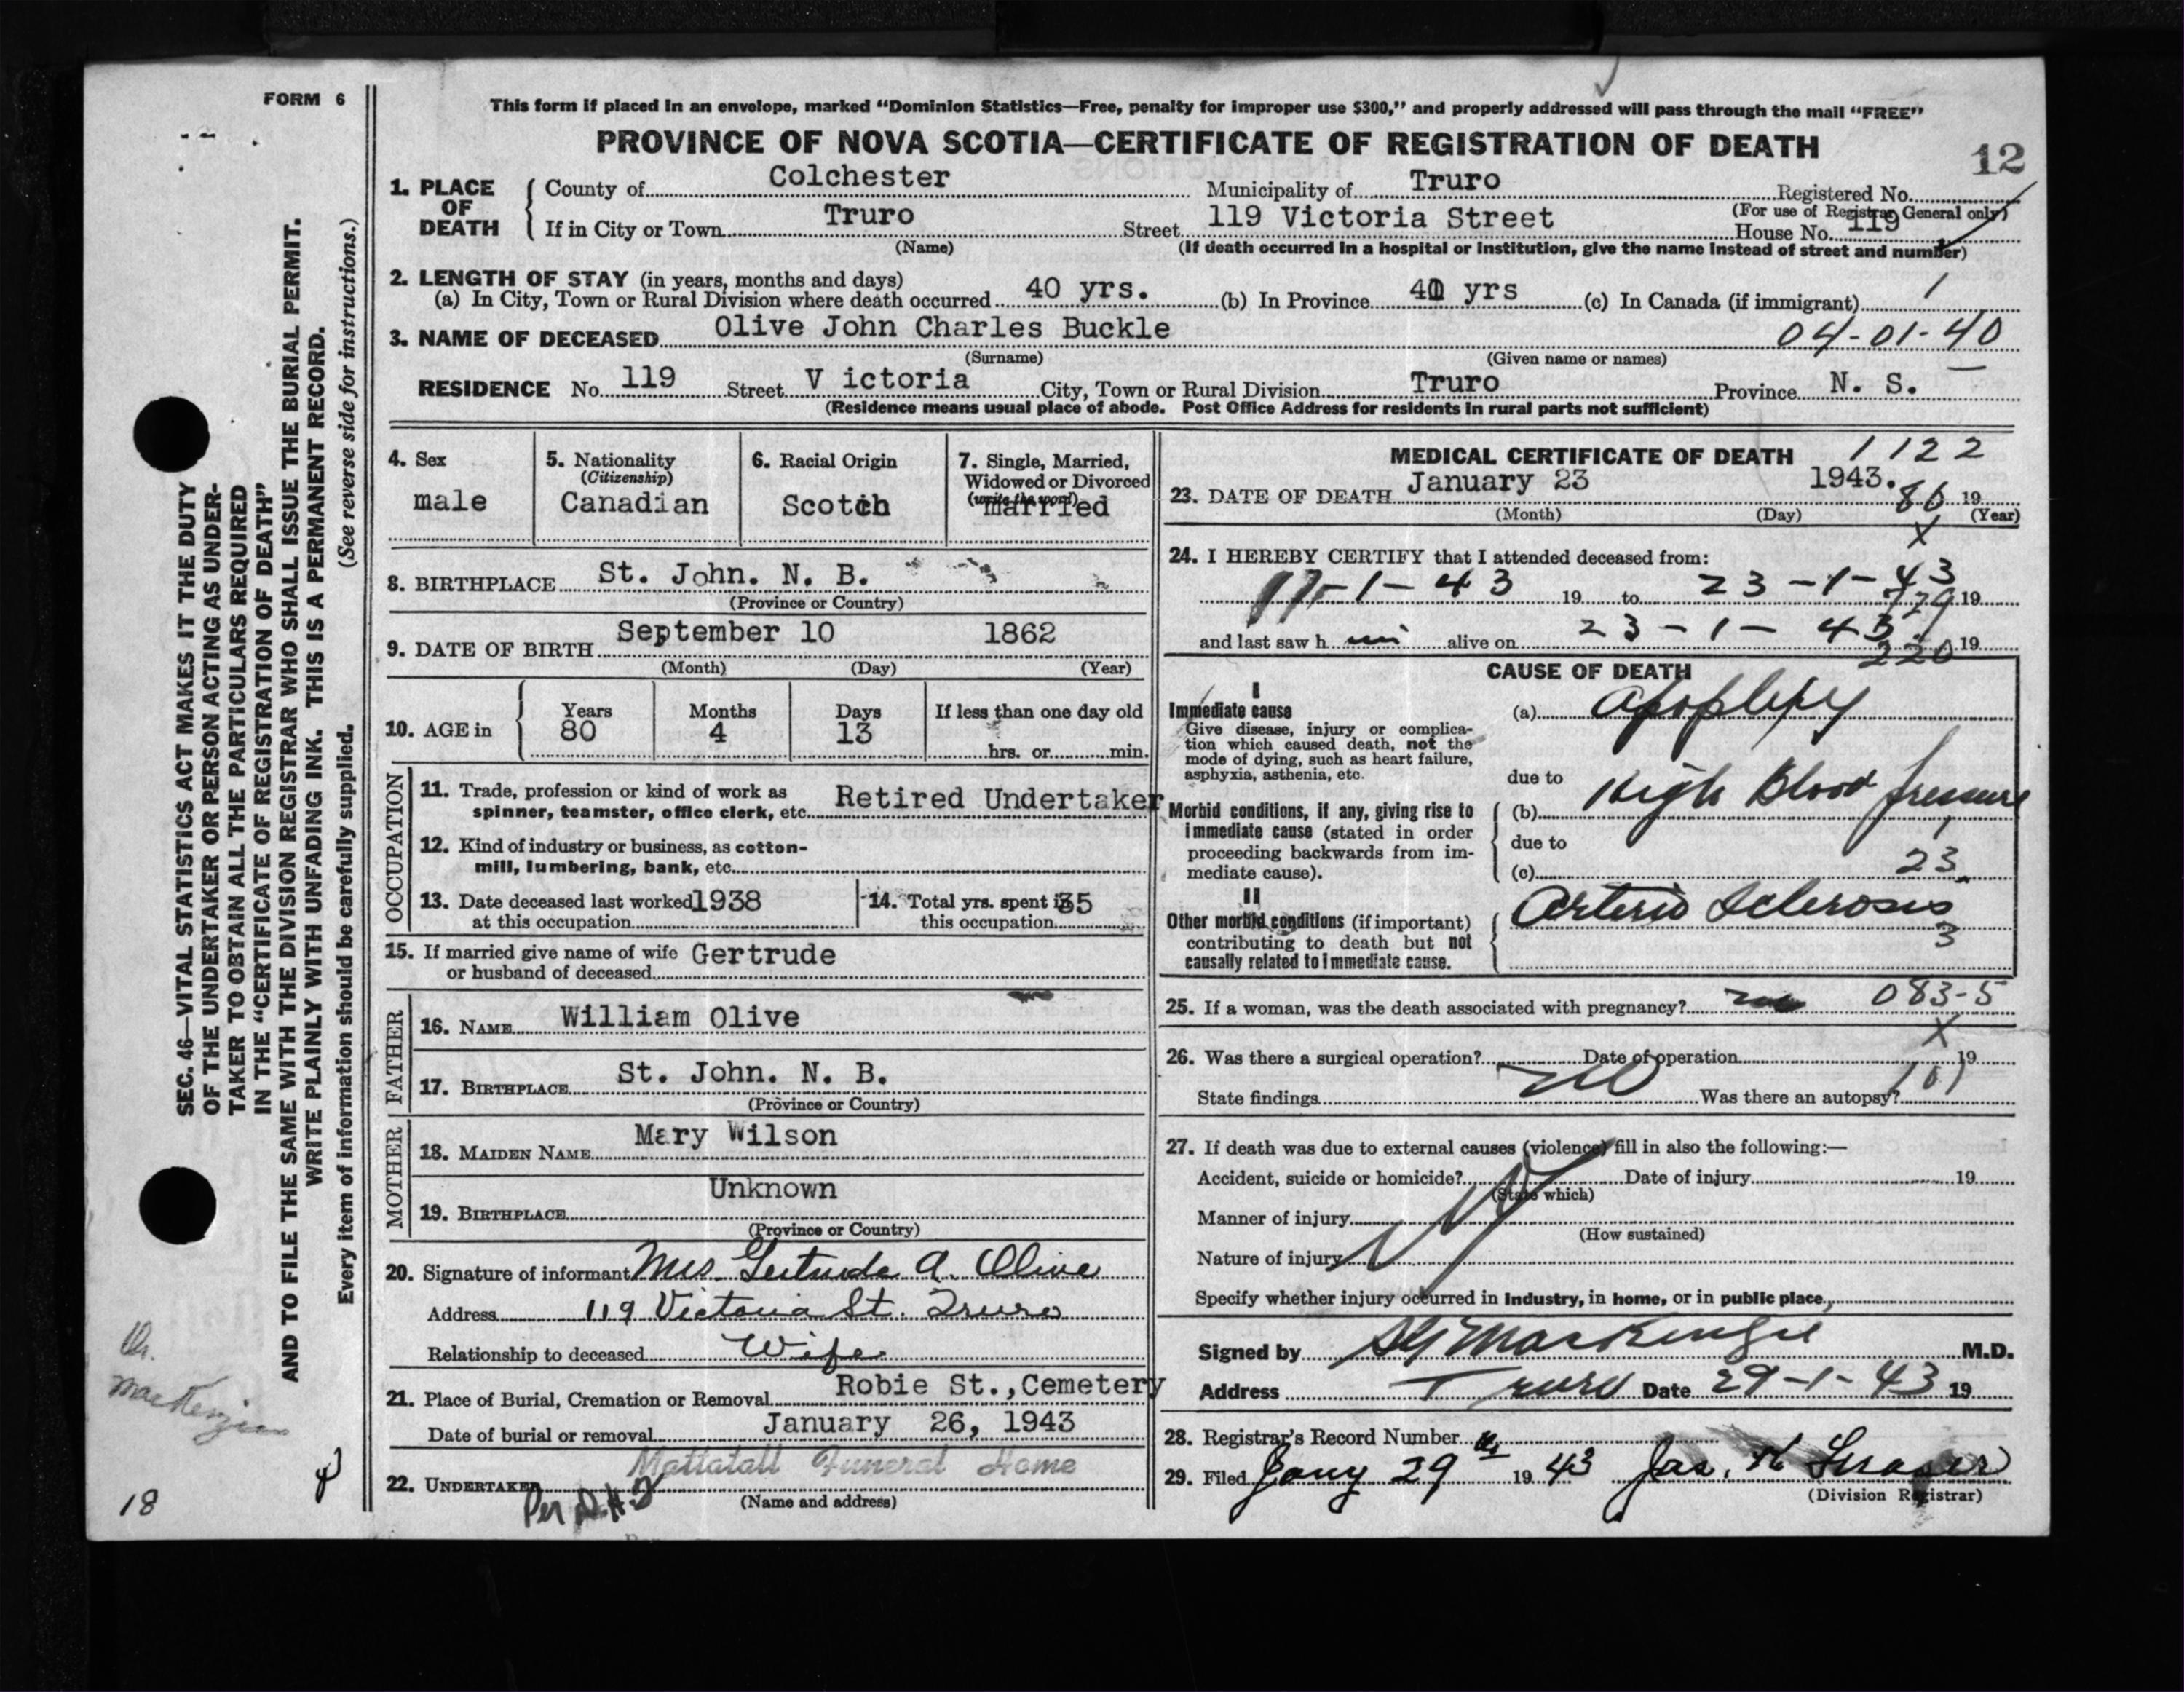 FORM 6
This form if placed in an envelope, marked "Dominion Statistics—Free, penalty for improper use $300," and properly addressed will pass through the mail "FREE"
PROVINCE OF NOVA SCOTIA—CERTIFICATE OF REGISTRATION OF DEATH
12
1. PLACE OF DEATH
County of Colchester Municipality of Truro Registered No.
(For use of Registrar General only)
If in City or Town Truro Street 119 Victoria Street House No. 119
(Name) (If death occurred in a hospital or institution, give the name instead of street and number)
2. LENGTH OF STAY (in years, months and days)
(a) In City, Town or Rural Division where death occurred 40 yrs. (b) In Province 40 yrs (c) In Canada (if immigrant) 1
3. NAME OF DECEASED Olive John Charles Buckle 04-01-40
(Surname) (Given name or names)
RESIDENCE No. 119 Street V ictoria City, Town or Rural Division Truro Province N. S.
(Residence means usual place of abode. Post Office Address for residents in rural parts not sufficient)
4. Sex
male
5. Nationality
(Citizenship)
Canadian
6. Racial Origin
Scotch
7. Single, Married,
Widowed or Divorced
(write the word)
married
8. BIRTHPLACE St. John. N. B.
(Province or Country)
9. DATE OF BIRTH September 10 1862
(Month) (Day) (Year)
10. AGE in
Years Months Days If less than one day old
80 4 13
hrs. or min.
OCCUPATION
11. Trade, profession or kind of work as
spinner, teamster, office clerk, etc. Retired Undertaker
12. Kind of industry or business, as cotton-
mill, lumbering, bank, etc.
13. Date deceased last worked 1938
at this occupation
14. Total yrs. spent in 35
this occupation
15. If married give name of wife Gertrude
or husband of deceased
FATHER
16. NAME William Olive
17. BIRTHPLACE St. John. N. B.
(Province or Country)
MOTHER
18. MAIDEN NAME Mary Wilson
19. BIRTHPLACE Unknown
(Province or Country)
20. Signature of informant Mrs. Gertrude A. Olive
Address 119 Victoria St. Truro
Relationship to deceased Wife
21. Place of Burial, Cremation or Removal Robie St., Cemetery
Date of burial or removal January 26, 1943
22. UNDERTAKER Mattatall Funeral Home
Per
(Name and address)
MEDICAL CERTIFICATE OF DEATH 1122
23. DATE OF DEATH January 23 1943. 19
80
(Month) (Day) (Year)
X
24. I HEREBY CERTIFY that I attended deceased from:
-1-43 19 to 23-1-43 19
and last saw h im alive on 23-1-43 19
220
CAUSE OF DEATH
I
Immediate cause
Give disease, injury or complica-
tion which caused death, not the
mode of dying, such as heart failure,
asphyxia, asthenia, etc.
(a) Apoplexy
due to
Morbid conditions, if any, giving rise to
immediate cause (stated in order
proceeding backwards from im-
mediate cause).
(b) High Blood Pressure
due to
(c) 23
II
Other morbid conditions (if important)
contributing to death but not
causally related to immediate cause.
Arterio Sclerosis
3
25. If a woman, was the death associated with pregnancy? no 083-5
X
26. Was there a surgical operation? Date of operation 19
no
State findings Was there an autopsy? 101
27. If death was due to external causes (violence) fill in also the following:—
Accident, suicide or homicide? Date of injury 19
(State which)
Manner of injury
(How sustained)
Nature of injury
Specify whether injury occurred in industry, in home, or in public place
Signed by MacKenzie M.D.
Address Truro Date 29-1-43 19
28. Registrar's Record Number
29. Filed Jany 29th 19 43 Jas. H Fraser
(Division Registrar)
SEC. 46—VITAL STATISTICS ACT MAKES IT THE DUTY
OF THE UNDERTAKER OR PERSON ACTING AS UNDER-
TAKER TO OBTAIN ALL THE PARTICULARS REQUIRED
IN THE "CERTIFICATE OF REGISTRATION OF DEATH"
AND TO FILE THE SAME WITH THE DIVISION REGISTRAR WHO SHALL ISSUE THE BURIAL PERMIT.
WRITE PLAINLY WITH UNFADING INK. THIS IS A PERMANENT RECORD.
Every item of information should be carefully supplied. (See reverse side for instructions.)
Dr.
MacKenzie
18